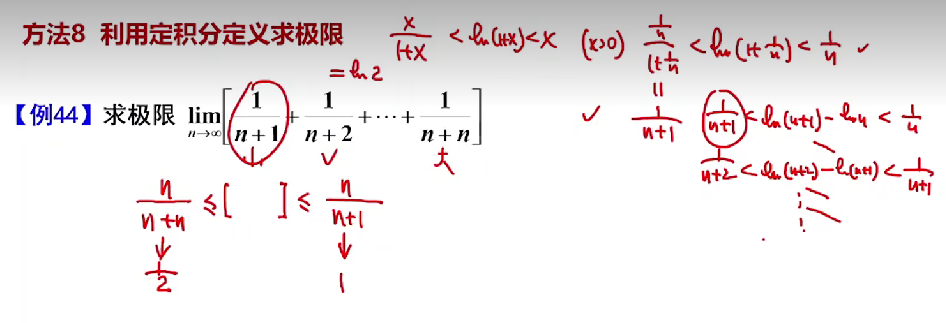 方法8 利用定积分定义求极限
x/(1+x) < ln(1+x) < x (x>0)
(1/n)/(1+1/n) < ln(1+1/n) < 1/n ✓
= ln2
【例44】求极限 lim n→∞ [1/(n+1) + 1/(n+2) + ⋯ + 1/(n+n)]
大
n/(n+n) ≤ [ ] ≤ n/(n+1)
↓ ↓
1/2 1
=
✓ 1/(n+1)
1/(n+1) < ln(n+1) - ln n < 1/n
1/(n+2) < ln(n+2) - ln(n+1) < 1/(n+1)
⋮